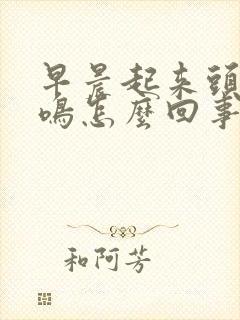 早晨起来頭
鳴怎麼回事
和阿芳